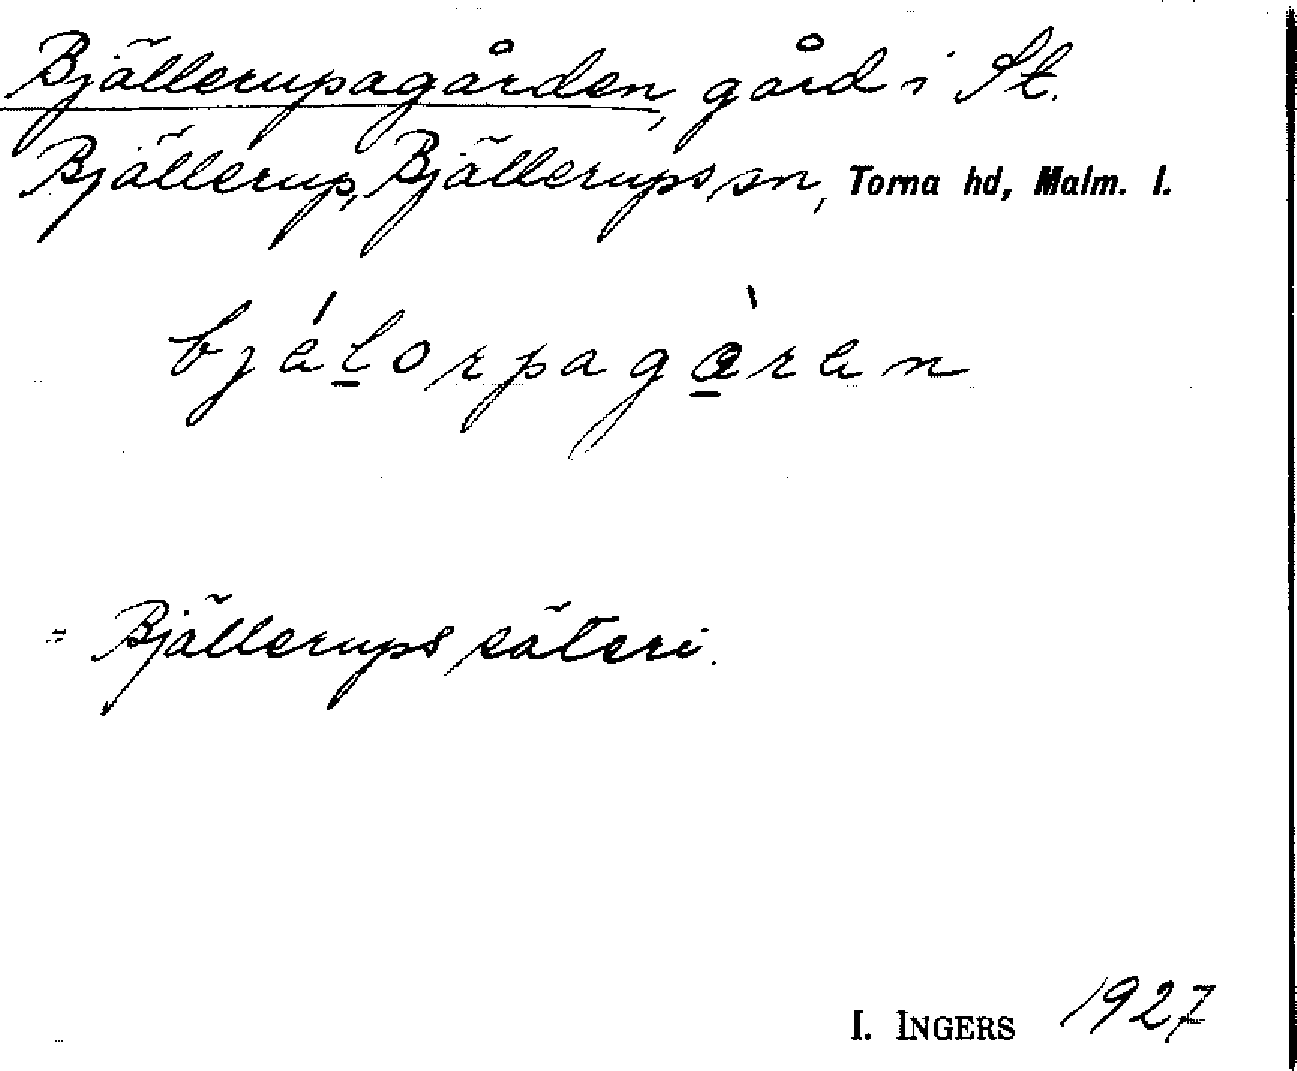 Bjällerupagården, gård i St.
Bjällerup, Bjällerups sn, Torna hd, Malm. l.
bjälorpagåren
= Bjällerups säteri.
I. INGERS 1927